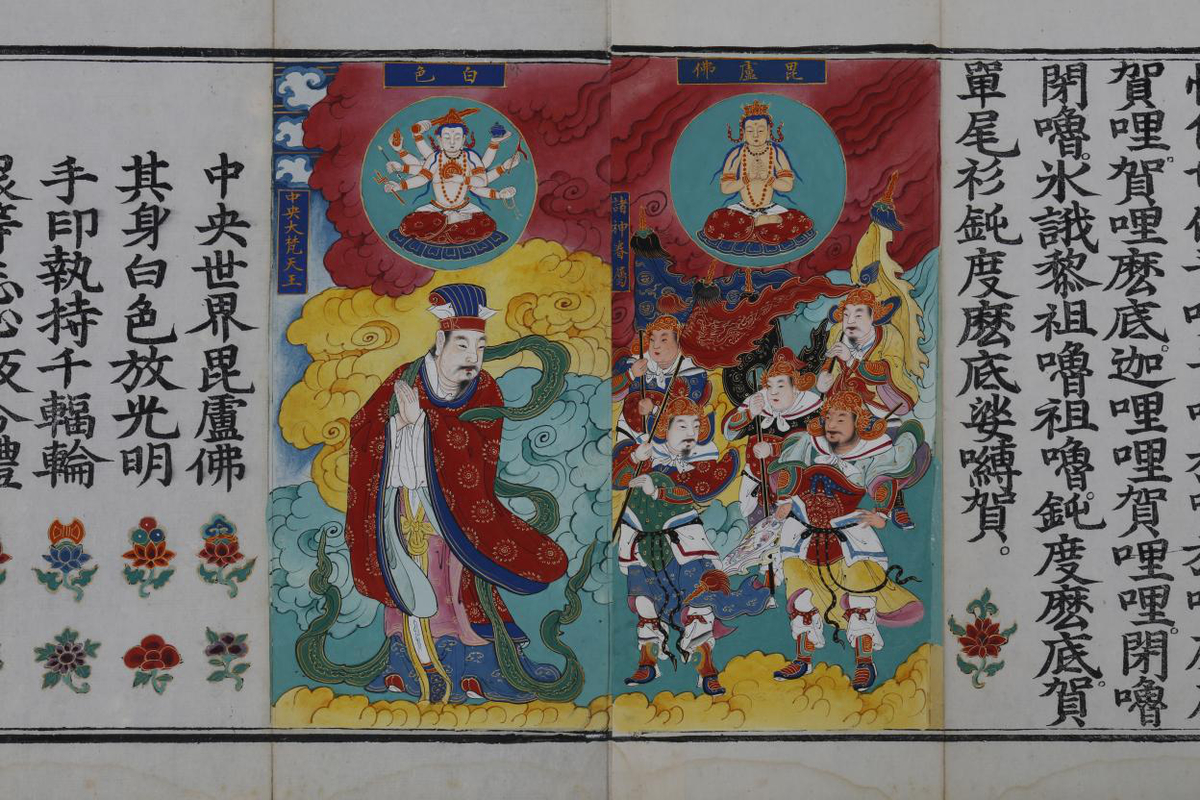 賀哩。賀哩麼底。迦哩哩賀哩哩。閉嚕
閉嚕。氷誐黎祖嚕祖嚕。鈍度麼底。賀
單尾衫鈍度麼底娑嚩賀。
毘盧佛
諸神眷屬
白色
中央大梵天王
中央世界毘盧佛
其身白色放光明
手印執持千輻輪